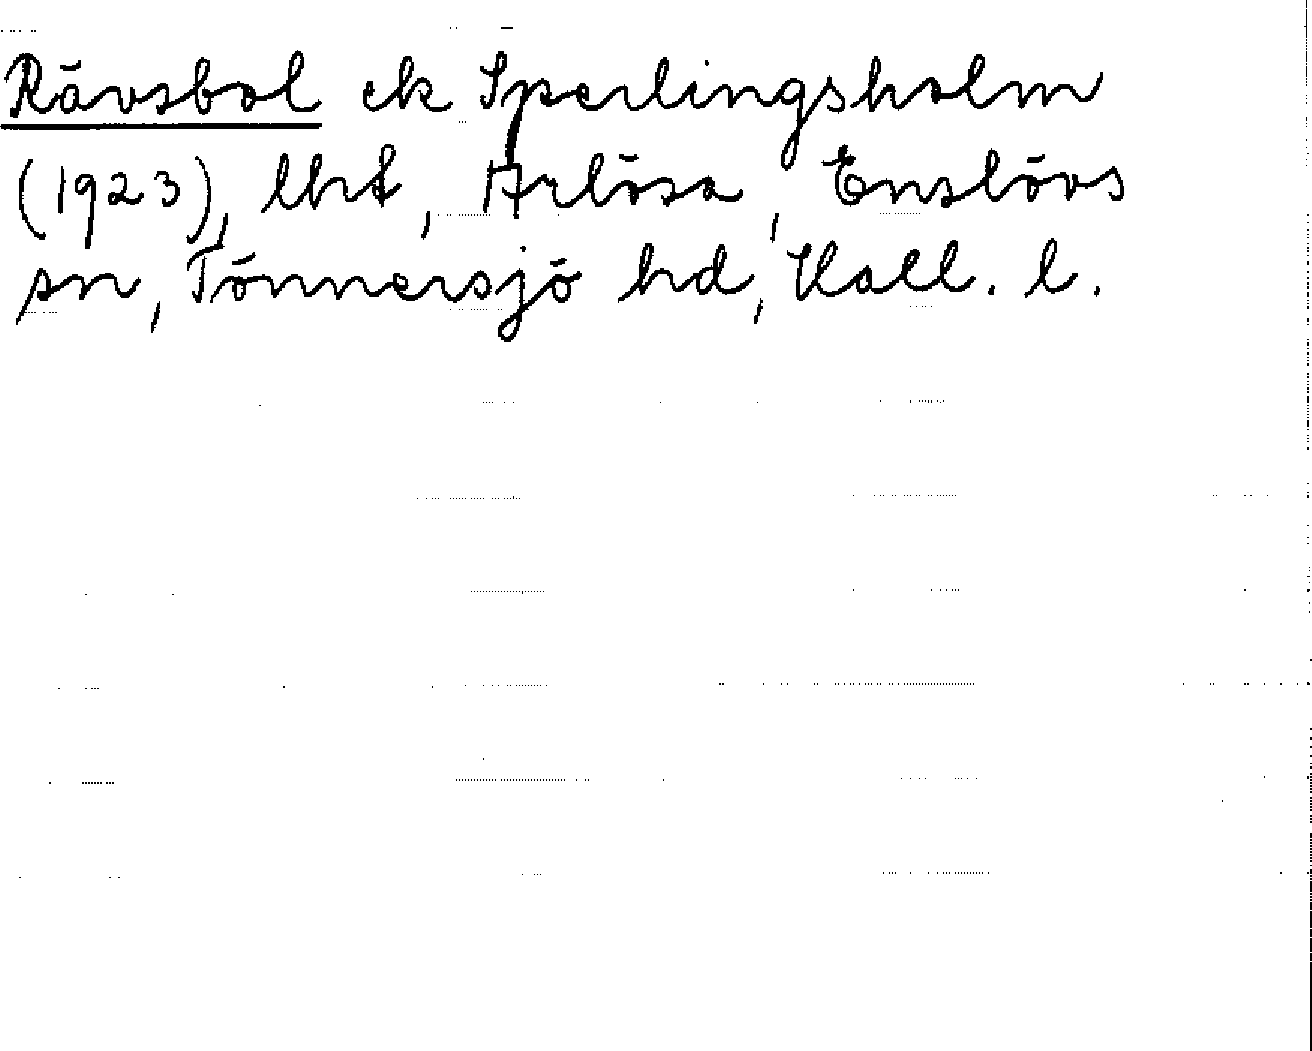 Rävsbol ek Sperlingsholm
(1923), lht, Årlösa, Enslövs
sn, Tönnersjö hd, Hall. l.